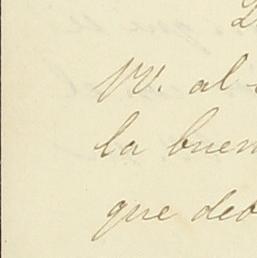 VV. al
la buen
que deb